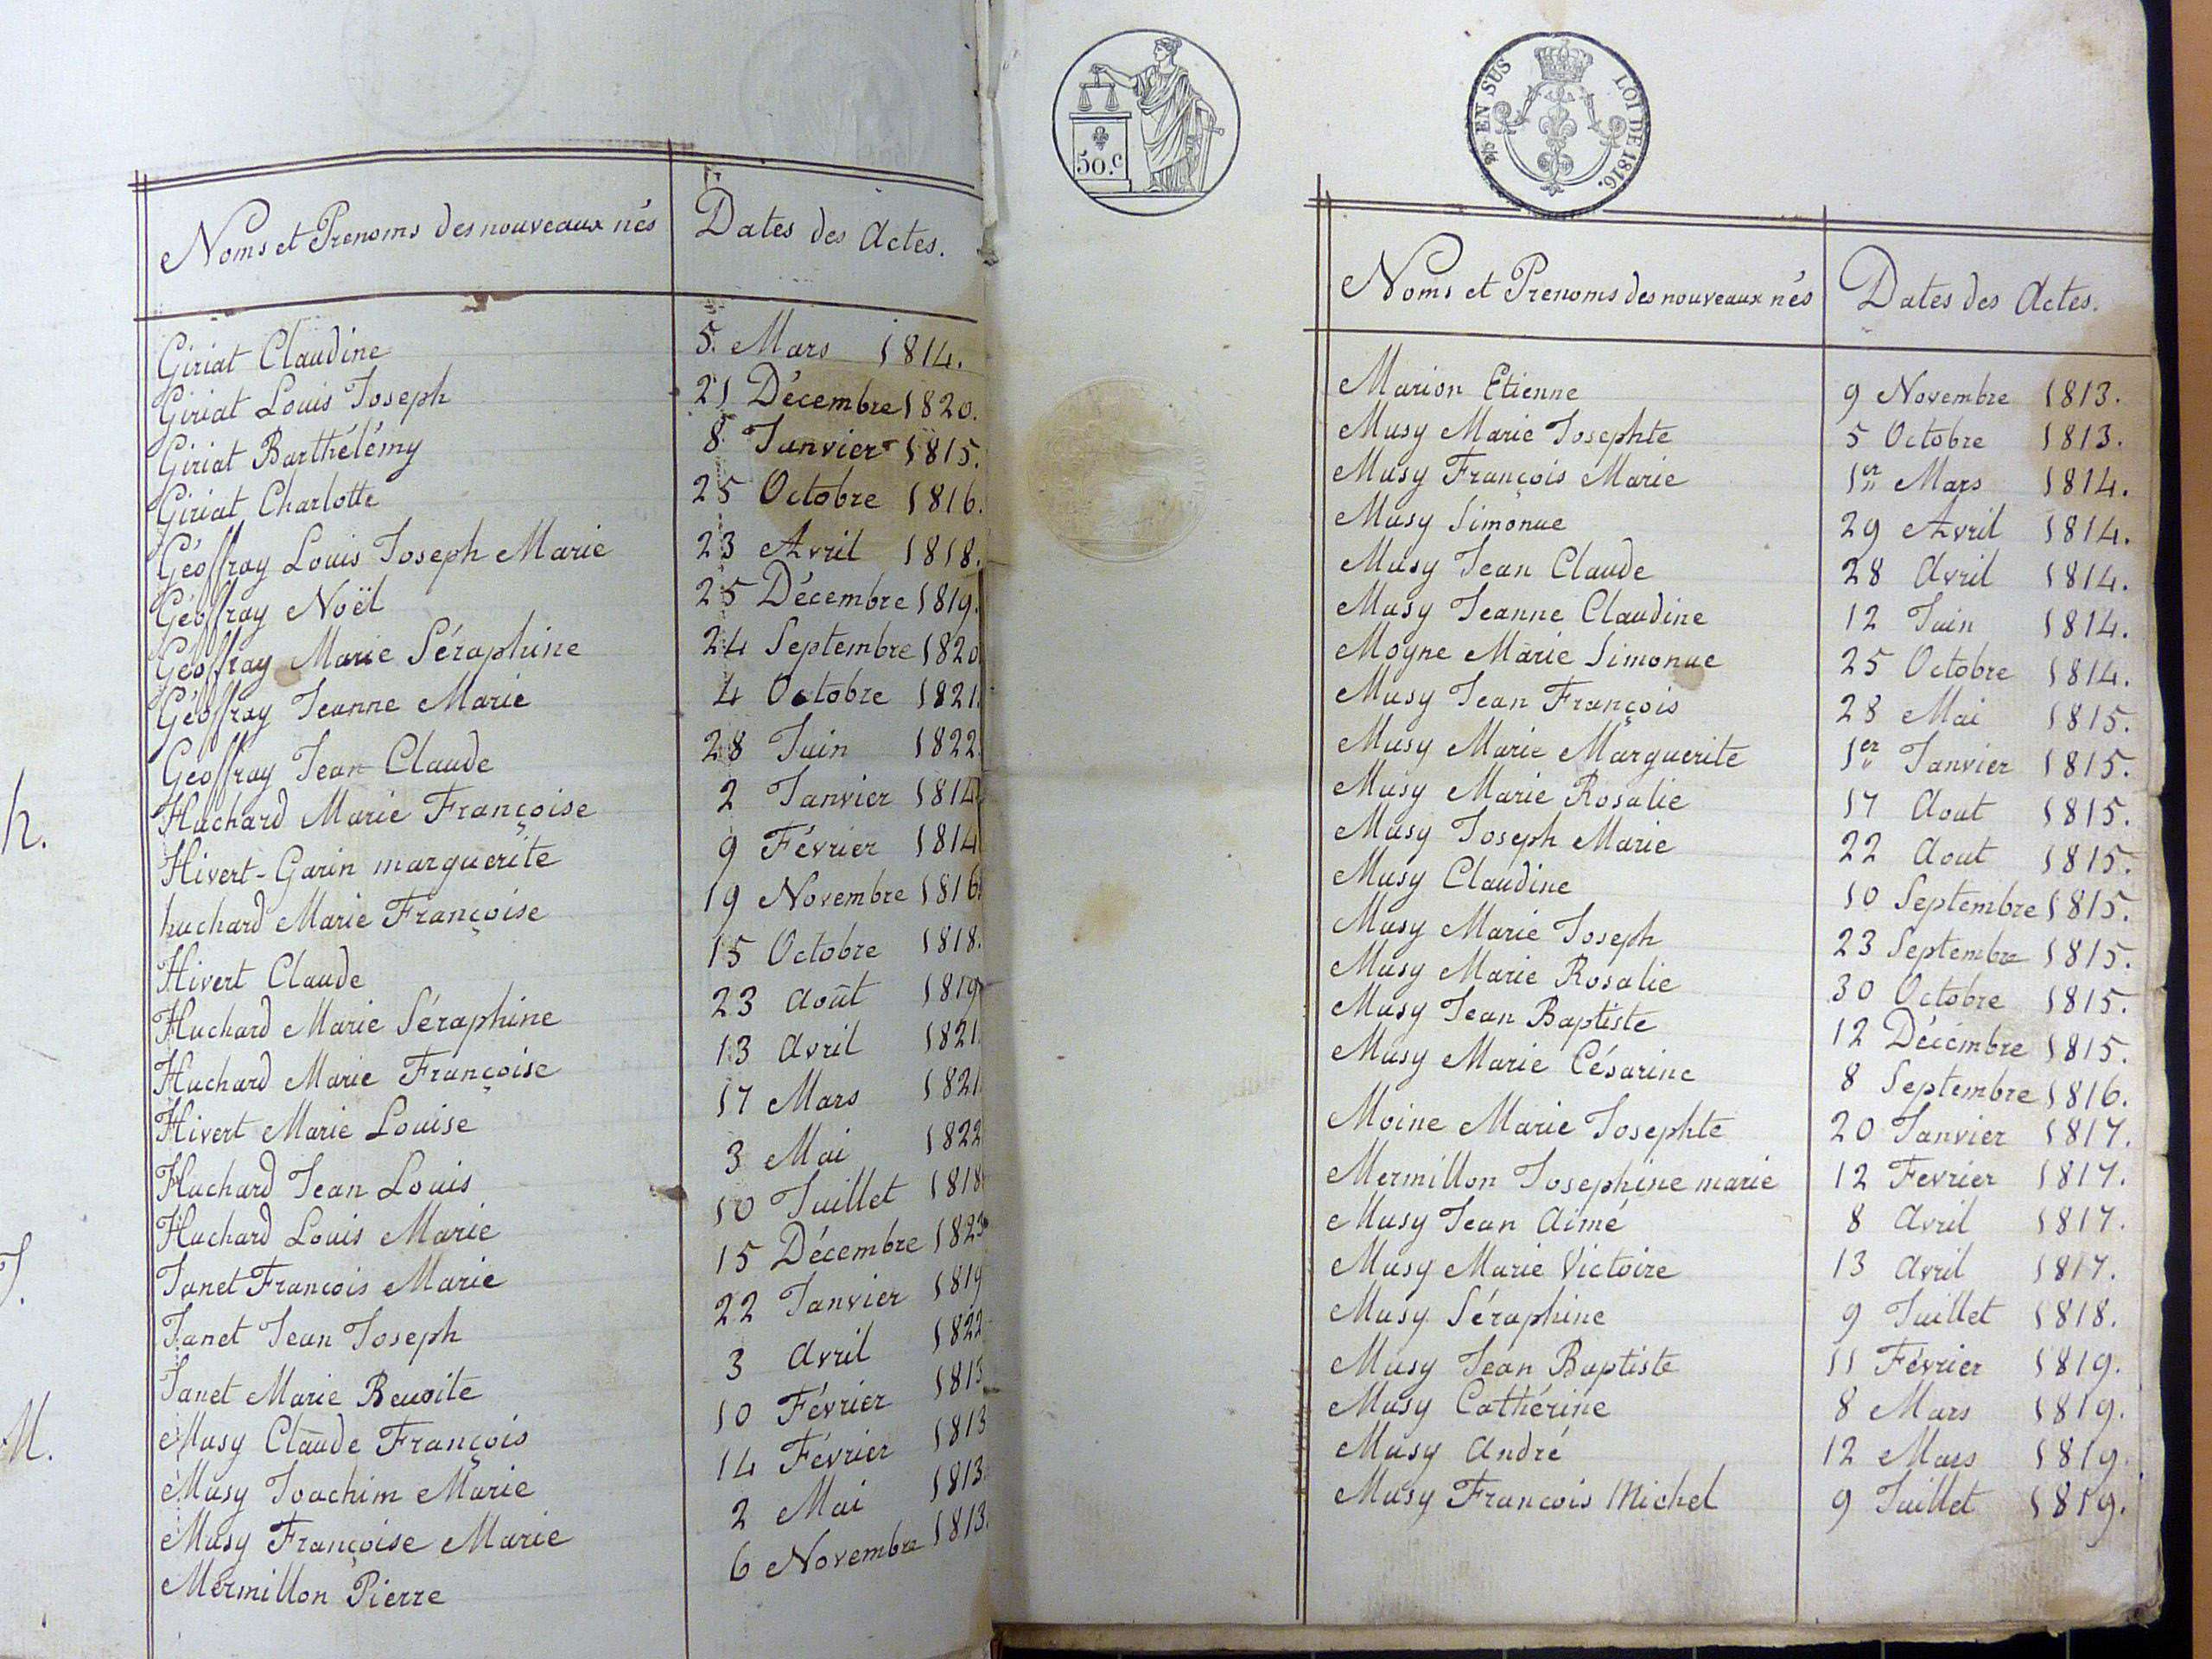 Noms et Prenoms des nouveaux nés Dates des Actes.
Giriat Claudine 5. Mars 1814.
Giriat Louis Joseph 21 Décembre 1820.
Giriat Barthélémy 8 Janvier 1815.
Giriat Charlotte 25 Octobre 1816.
Géoffray Louis Joseph Marie 23 Avril 1818.
Géoffray Noël 25 Décembre 1819.
Géoffray Marie Séraphine 24 Septembre 1820
Géoffray Jeanne Marie 4 Octobre 1821.
Geoffray Jean Claude 28 Juin 1822
h.
Huchard Marie Françoise 2 Janvier 1814
Hivert-Garin marguerite 9 Février 1814
huchard Marie Françoise 19 Novembre 1816.
Hivert Claude 15 Octobre 1818.
Huchard Marie Séraphine 23 Août 1819
Huchard Marie Françoise 13 Avril 1821
Hivert Marie Louise 17 Mars 1821
Huchard Jean Louis 3 Mai 1822
Huchard Louis Marie 10 Juillet 1818
J.
Janet François Marie 15 Décembre 1823
Janet Jean Joseph 22 Janvier 1819
Janet Marie Benoite 3 Avril 1822
M.
Musy Claude François 10 Février 1813
Musy Joachim Marie 14 Février 1813
Musy Françoise Marie 2 Mai 1813
Mermillon Pierre 6 Novembre 1813.
50.c
EN SUS LOI DE 1816.
Noms et Prenoms des nouveaux nés Dates des Actes.
Marion Etienne 9 Novembre 1813.
Musy Marie Josephte 5 Octobre 1813.
Musy François Marie 1er Mars 1814.
Musy Simonne 29 Avril 1814.
Musy Jean Claude 28 Avril 1814.
Musy Jeanne Claudine 12 Juin 1814.
Moyne Marie Simonne 25 Octobre 1814.
Musy Jean François 28 Mai 1815.
Musy Marie Marguerite 1er Janvier 1815.
Musy Marie Rosalie 17 Aout 1815.
Musy Joseph Marie 22 Aout 1815.
Musy Claudine 10 Septembre 1815.
Musy Marie Joseph 23 Septembre 1815.
Musy Marie Rosalie 30 Octobre 1815.
Musy Jean Baptiste 12 Décembre 1815.
Musy Marie Césarine 8 Septembre 1816.
Moine Marie Josephte 20 Janvier 1817.
Mermillon Josephine marie 12 Fevrier 1817.
Musy Jean Aimé 8 Avril 1817.
Musy Marie Victoire 13 Avril 1817.
Musy Séraphine 9 Juillet 1818.
Musy Jean Baptiste 11 Février 1819.
Musy Cathérine 8 Mars 1819.
Musy André 12 Mars 1819.
Musy Francois Michel 9 Juillet 1819.